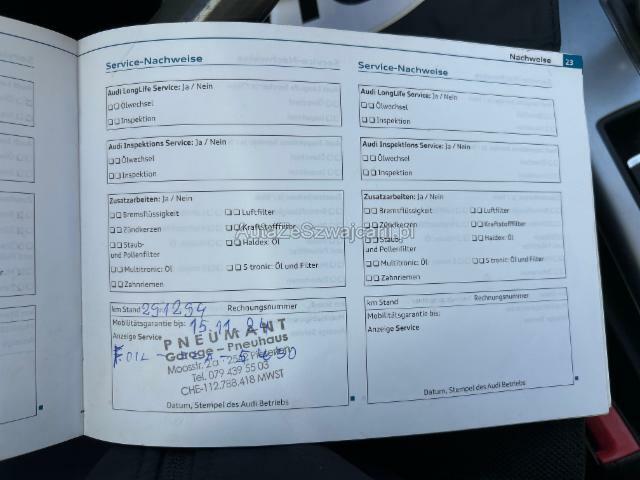 Nachweise 23
Service-Nachweise
Audi LongLife Service: Ja / Nein
Ölwechsel
Inspektion
Audi Inspektions Service: Ja / Nein
Ölwechsel
Inspektion
Zusatzarbeiten: Ja / Nein
Bremsflüssigkeit Luftfilter
Zündkerzen Kraftstofffilter
Staub- Haldex: Öl
und Pollenfilter
Multitronic: Öl S tronic: Öl und Filter
Zahnriemen
km Stand 291294 Rechnungsnummer
Mobilitätsgarantie bis: 15.11.24
Anzeige Service
PNEUMANT
Garage - Pneuhaus
OIL
Moosstr. 2a
Tel. 079 439 55 03
CHE-112.788.418 MWST
Datum, Stempel des Audi Betriebs
Service-Nachweise
Audi LongLife Service: Ja / Nein
Ölwechsel
Inspektion
Audi Inspektions Service: Ja / Nein
Ölwechsel
Inspektion
Zusatzarbeiten: Ja / Nein
Bremsflüssigkeit Luftfilter
Zündkerzen Kraftstofffilter
Staub- Haldex: Öl
und Pollenfilter
Multitronic: Öl S tronic: Öl und Filter
Zahnriemen
km Stand Rechnungsnummer
Mobilitätsgarantie bis:
Anzeige Service
Datum, Stempel des Audi Betriebs
AutaZeSzwajcarii.pl